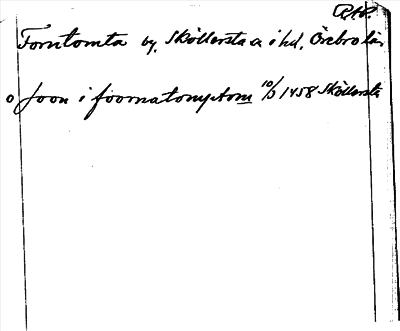 RAP.
Forntomta by, Sköllersta s i hd, Örebro län
o Joon i foornatomptom 10/3 1458 Sköllersta